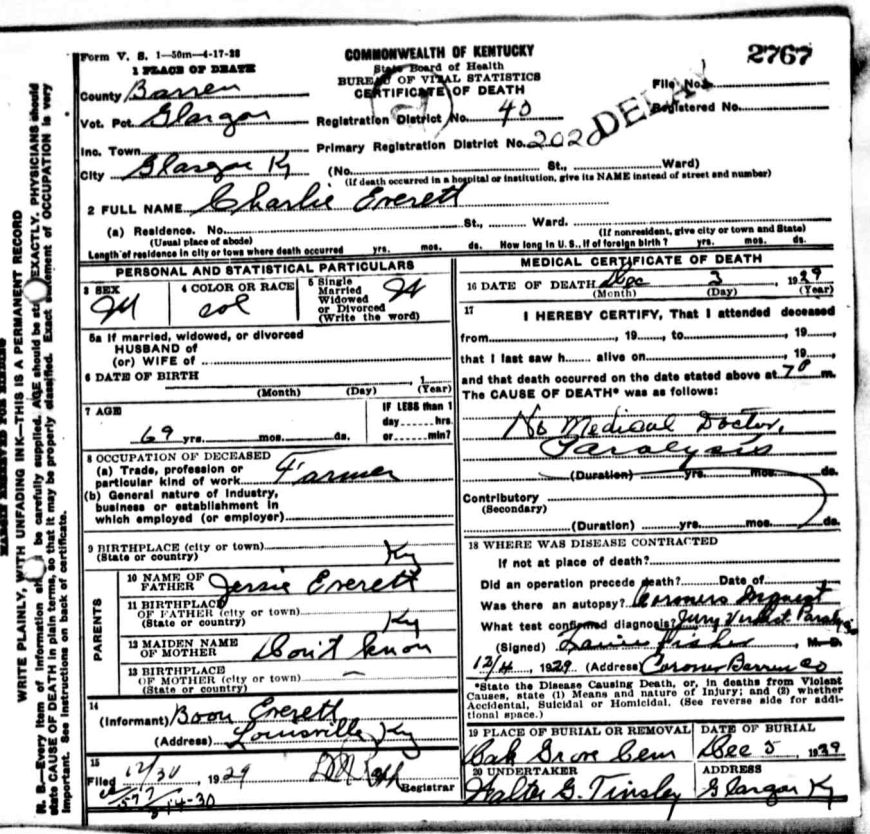 Form V. S. 1—50m—4-17-28
COMMONWEALTH OF KENTUCKY
State Board of Health
BUREAU OF VITAL STATISTICS
CERTIFICATE OF DEATH
2767
1 PLACE OF DEATH
County Barren
File No.
DELAY
Registered No.
Vot. Pct. Glasgow
Registration District No. 40
Inc. Town
Primary Registration District No. 2020
City Glasgow Ky
(No. St., Ward)
(If death occurred in a hospital or institution, give its NAME instead of street and number)
2 FULL NAME Charlie Everett
(a) Residence. No. St., Ward.
(Usual place of abode)
(If nonresident, give city or town and State)
Length of residence in city or town where death occurred yrs. mos. ds. How long in U.S., if of foreign birth? yrs. mos. ds.
PERSONAL AND STATISTICAL PARTICULARS
3 SEX
M
4 COLOR OR RACE
col
5 Single
Married
Widowed
or Divorced
(Write the word)
5a If married, widowed, or divorced
HUSBAND of
(or) WIFE of
6 DATE OF BIRTH , 1
(Month) (Day) (Year)
7 AGE
69 yrs. mos. ds.
IF LESS than 1
day hrs.
or min?
8 OCCUPATION OF DECEASED
(a) Trade, profession or
particular kind of work Farmer
(b) General nature of industry,
business or establishment in
which employed (or employer)
9 BIRTHPLACE (city or town)
(State or country) Ky
PARENTS
10 NAME OF
FATHER Jessie Everett
11 BIRTHPLACE
OF FATHER (city or town)
(State or country) Ky
12 MAIDEN NAME
OF MOTHER Don't know
13 BIRTHPLACE
OF MOTHER (city or town) —
(State or country)
14
(Informant) Boon Everett
(Address) Louisville Ky
15
Filed 12/30, 1929
Registrar
5-14-30
MEDICAL CERTIFICATE OF DEATH
16 DATE OF DEATH Dec 3, 1929
(Month) (Day) (Year)
17
I HEREBY CERTIFY, That I attended deceased
from , 19 , to , 19 ,
that I last saw h alive on , 19 ,
and that death occurred on the date stated above at m.
The CAUSE OF DEATH* was as follows:
No Medical Doctor,
Paralysis
(Duration) yrs. mos. ds.
Contributory
(Secondary)
(Duration) yrs. mos. ds.
18 WHERE WAS DISEASE CONTRACTED
If not at place of death?
Did an operation precede death? Date of
Was there an autopsy? Coroners Inquest
What test confirmed diagnosis? Jury Verdict Paralysis
(Signed) Fisher M. D.
12/4, 1929 (Address) Coroner Barren Co
*State the Disease Causing Death, or, in deaths from Violent
Causes, state (1) Means and nature of Injury; and (2) whether
Accidental, Suicidal or Homicidal. (See reverse side for addi-
tional space.)
19 PLACE OF BURIAL OR REMOVAL
Oak Grove Cem
DATE OF BURIAL
Dec 5, 1929
20 UNDERTAKER
Walter G. Tinsley
ADDRESS
Glasgow Ky
MARGIN RESERVED FOR BINDING
WRITE PLAINLY, WITH UNFADING INK—THIS IS A PERMANENT RECORD
N. B.—Every item of information should be carefully supplied. AGE should be stated EXACTLY. PHYSICIANS should
state CAUSE OF DEATH in plain terms, so that it may be properly classified. Exact statement of OCCUPATION is very
important. See instructions on back of certificate.